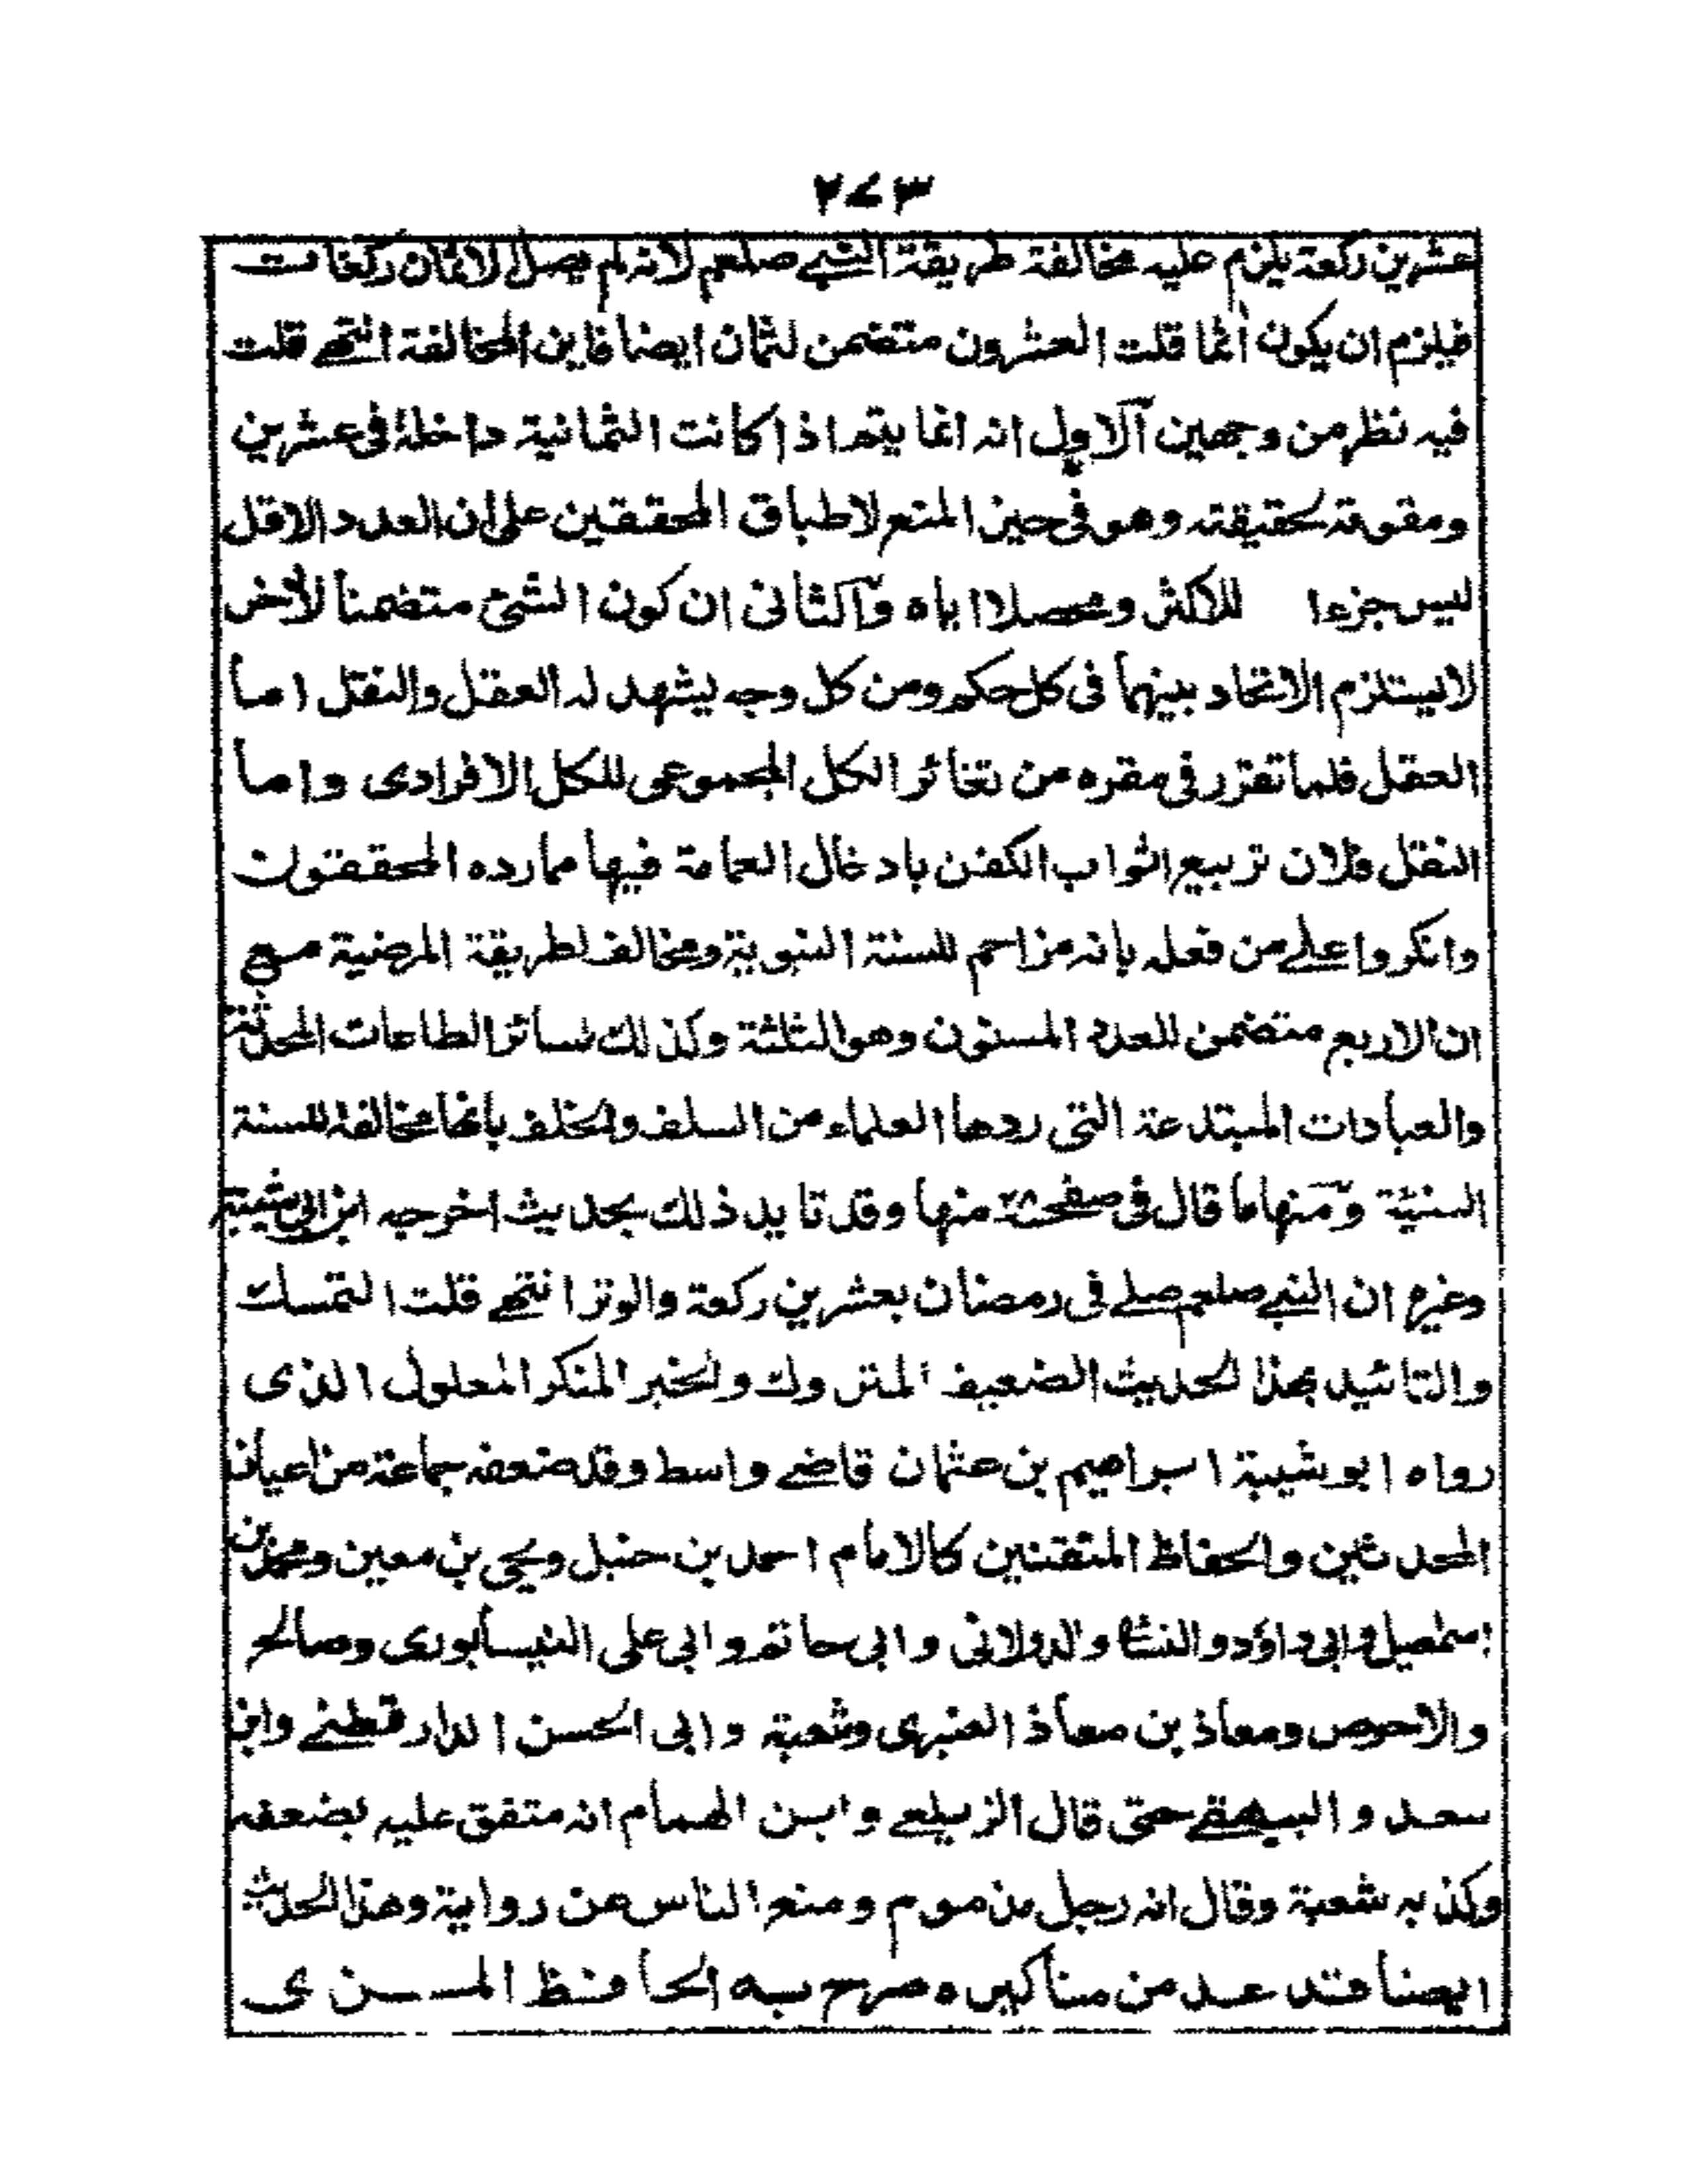 ۲۷۳
عشرين ركعة يلزم عليه مخالفة طريقة النبي صلعم لانه لم يصل الا ثمان ركعات
فيلزم ان يكون اثما قلت العشرون متضمن لثمان ايضا فاين المخالفة انتهى قلت
فيه نظر من وجهين آلاول انه انما يتم اذا كانت الثمانية داخلة فى عشرين
ومقومة لحقيقته وهو فى حيز المنع لاطباق المحققين على ان العدد الاقل
ليس جزءا للاكثر ومحصلا اياه وآلثانى ان كون الشئ متضمنا لأخر
لا يستلزم الاتحاد بينهما فى كل حكم ومن كل وجه يشهد له العقل والنقل اما
العقل فلما تقرر فى مقره من تغائر الكل المجموعى للكل الافرادى واما
النقل فلان تربيع اثواب الكفن بادخال العمامة فيها مما رده المحققون
وانكروا على من فعله بانه مزاحم للسنة النبوية ومخالف لطريقة المرضية مع
ان الاربع متضمن للعدد المسنون وهو الثلثة وكذلك لسائر الطاعات المحدثة
والعبادات المبتدعة التى ردها العلماء من السلف والخلف بانها مخالفة للسنة
السنية ومنها ما قال فى صفحة منها وقد تايد ذلك بحديث اخرجه ابن ابى شيبة
وغيره ان النبى صلعم صلى فى رمضان بعشرين ركعة والوتر انتهى قلت التمسك
والتائيد بهذا الحديث الضعيف المتروك والخبر المنكر المعلول الذى
رواه ابو شيبة ابراهيم بن عثمان قاضى واسط وقد ضعفه جماعة من اعيان
المحدثين والحفاظ المتقنين كالامام احمد بن حنبل ويحى بن معين ومحمد بن
اسمعيل وابى داؤد والنسائى والدولابى وابى حاتم وابى على النيسابورى وصالح
والاحوص ومعاذ بن معاذ العنبرى وشعبة وابى الحسن الدار قطنى وابن
سعد والبيهقى حتى قال الزيلعى وابن الهمام انه متفق عليه بضعفه
وكذبه شعبة وقال انه رجل مذموم ومنع الناس عن رواية وهذا الحديث
ايضا قد عد من مناكيره صرح به الحافظ المزى